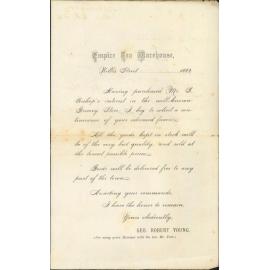 Empire Tea Warehouse,
Hollis Street 188
Having purchased Mr. J.
Bishop's interest in the well-known
Grocery Store, I beg to solicit a con-
tinuance of your esteemed favors.
All the goods kept in stock will
be of the very best quality, and sold at
the lowest possible prices.
Goods will be delivered free to any
part of the town.
Awaiting your commands,
I have the honor to remain,
Yours obediently,
GEO. ROBERT YOUNG,
(for many years Manager with the late Mr.